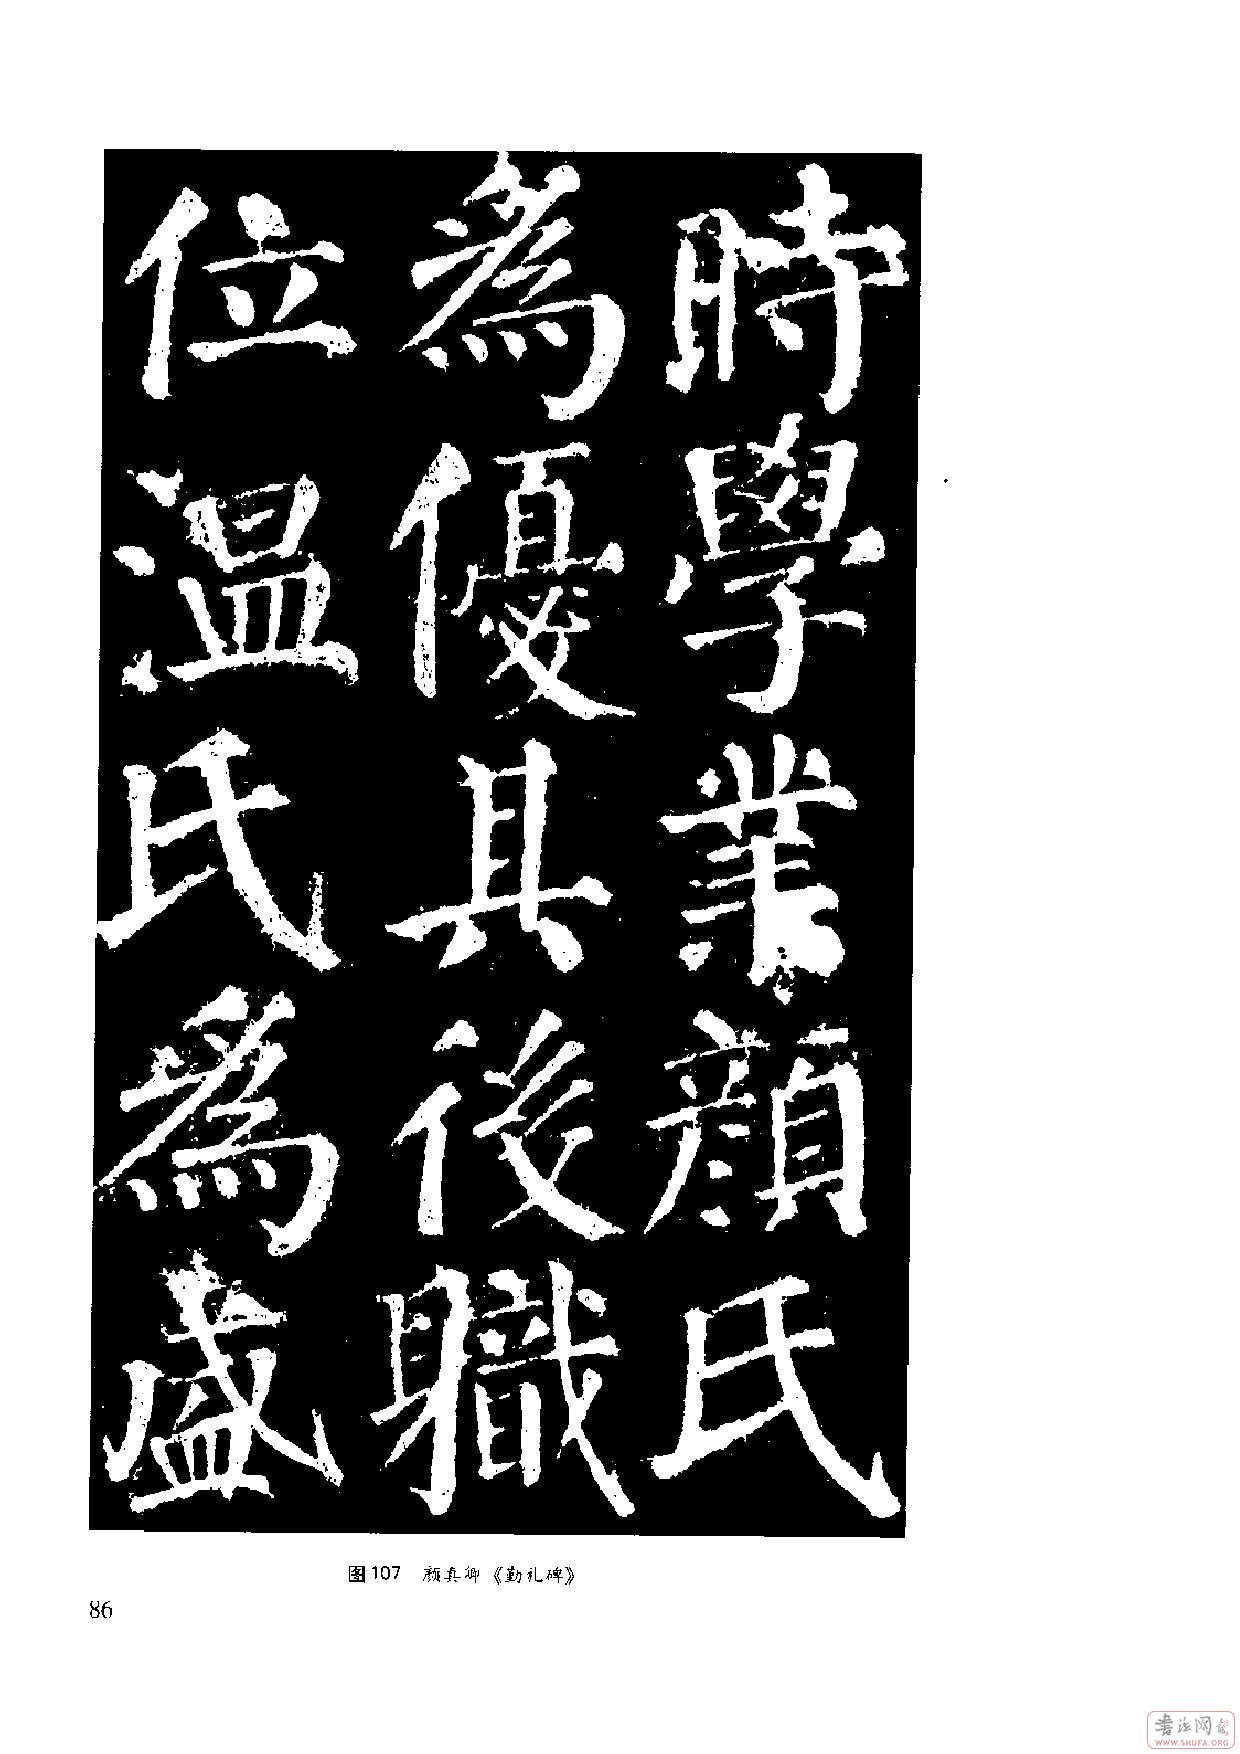 時學業顏氏
為優其後職
位温氏為盛
图107 颜真卿《勤礼碑》
86
书法网
WWW.SHUFA.ORG